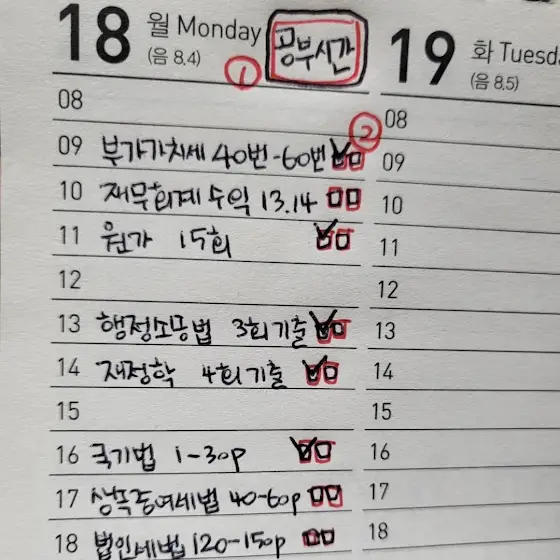 18 월 Monday (음 8.4)
① 공부시간
19 화 Tuesda (음 8.5)
08
②
09 부가가치세 40번-60번
10 재무회계 수익 13.14
11 원가 15회
12
13 행정소송법 3회기출
14 재정학 4회기출
15
16 국기법 1-30p
17 상속증여세법 40-60p
18 법인세법 120-150p
08
09
10
11
12
13
14
15
16
17
18